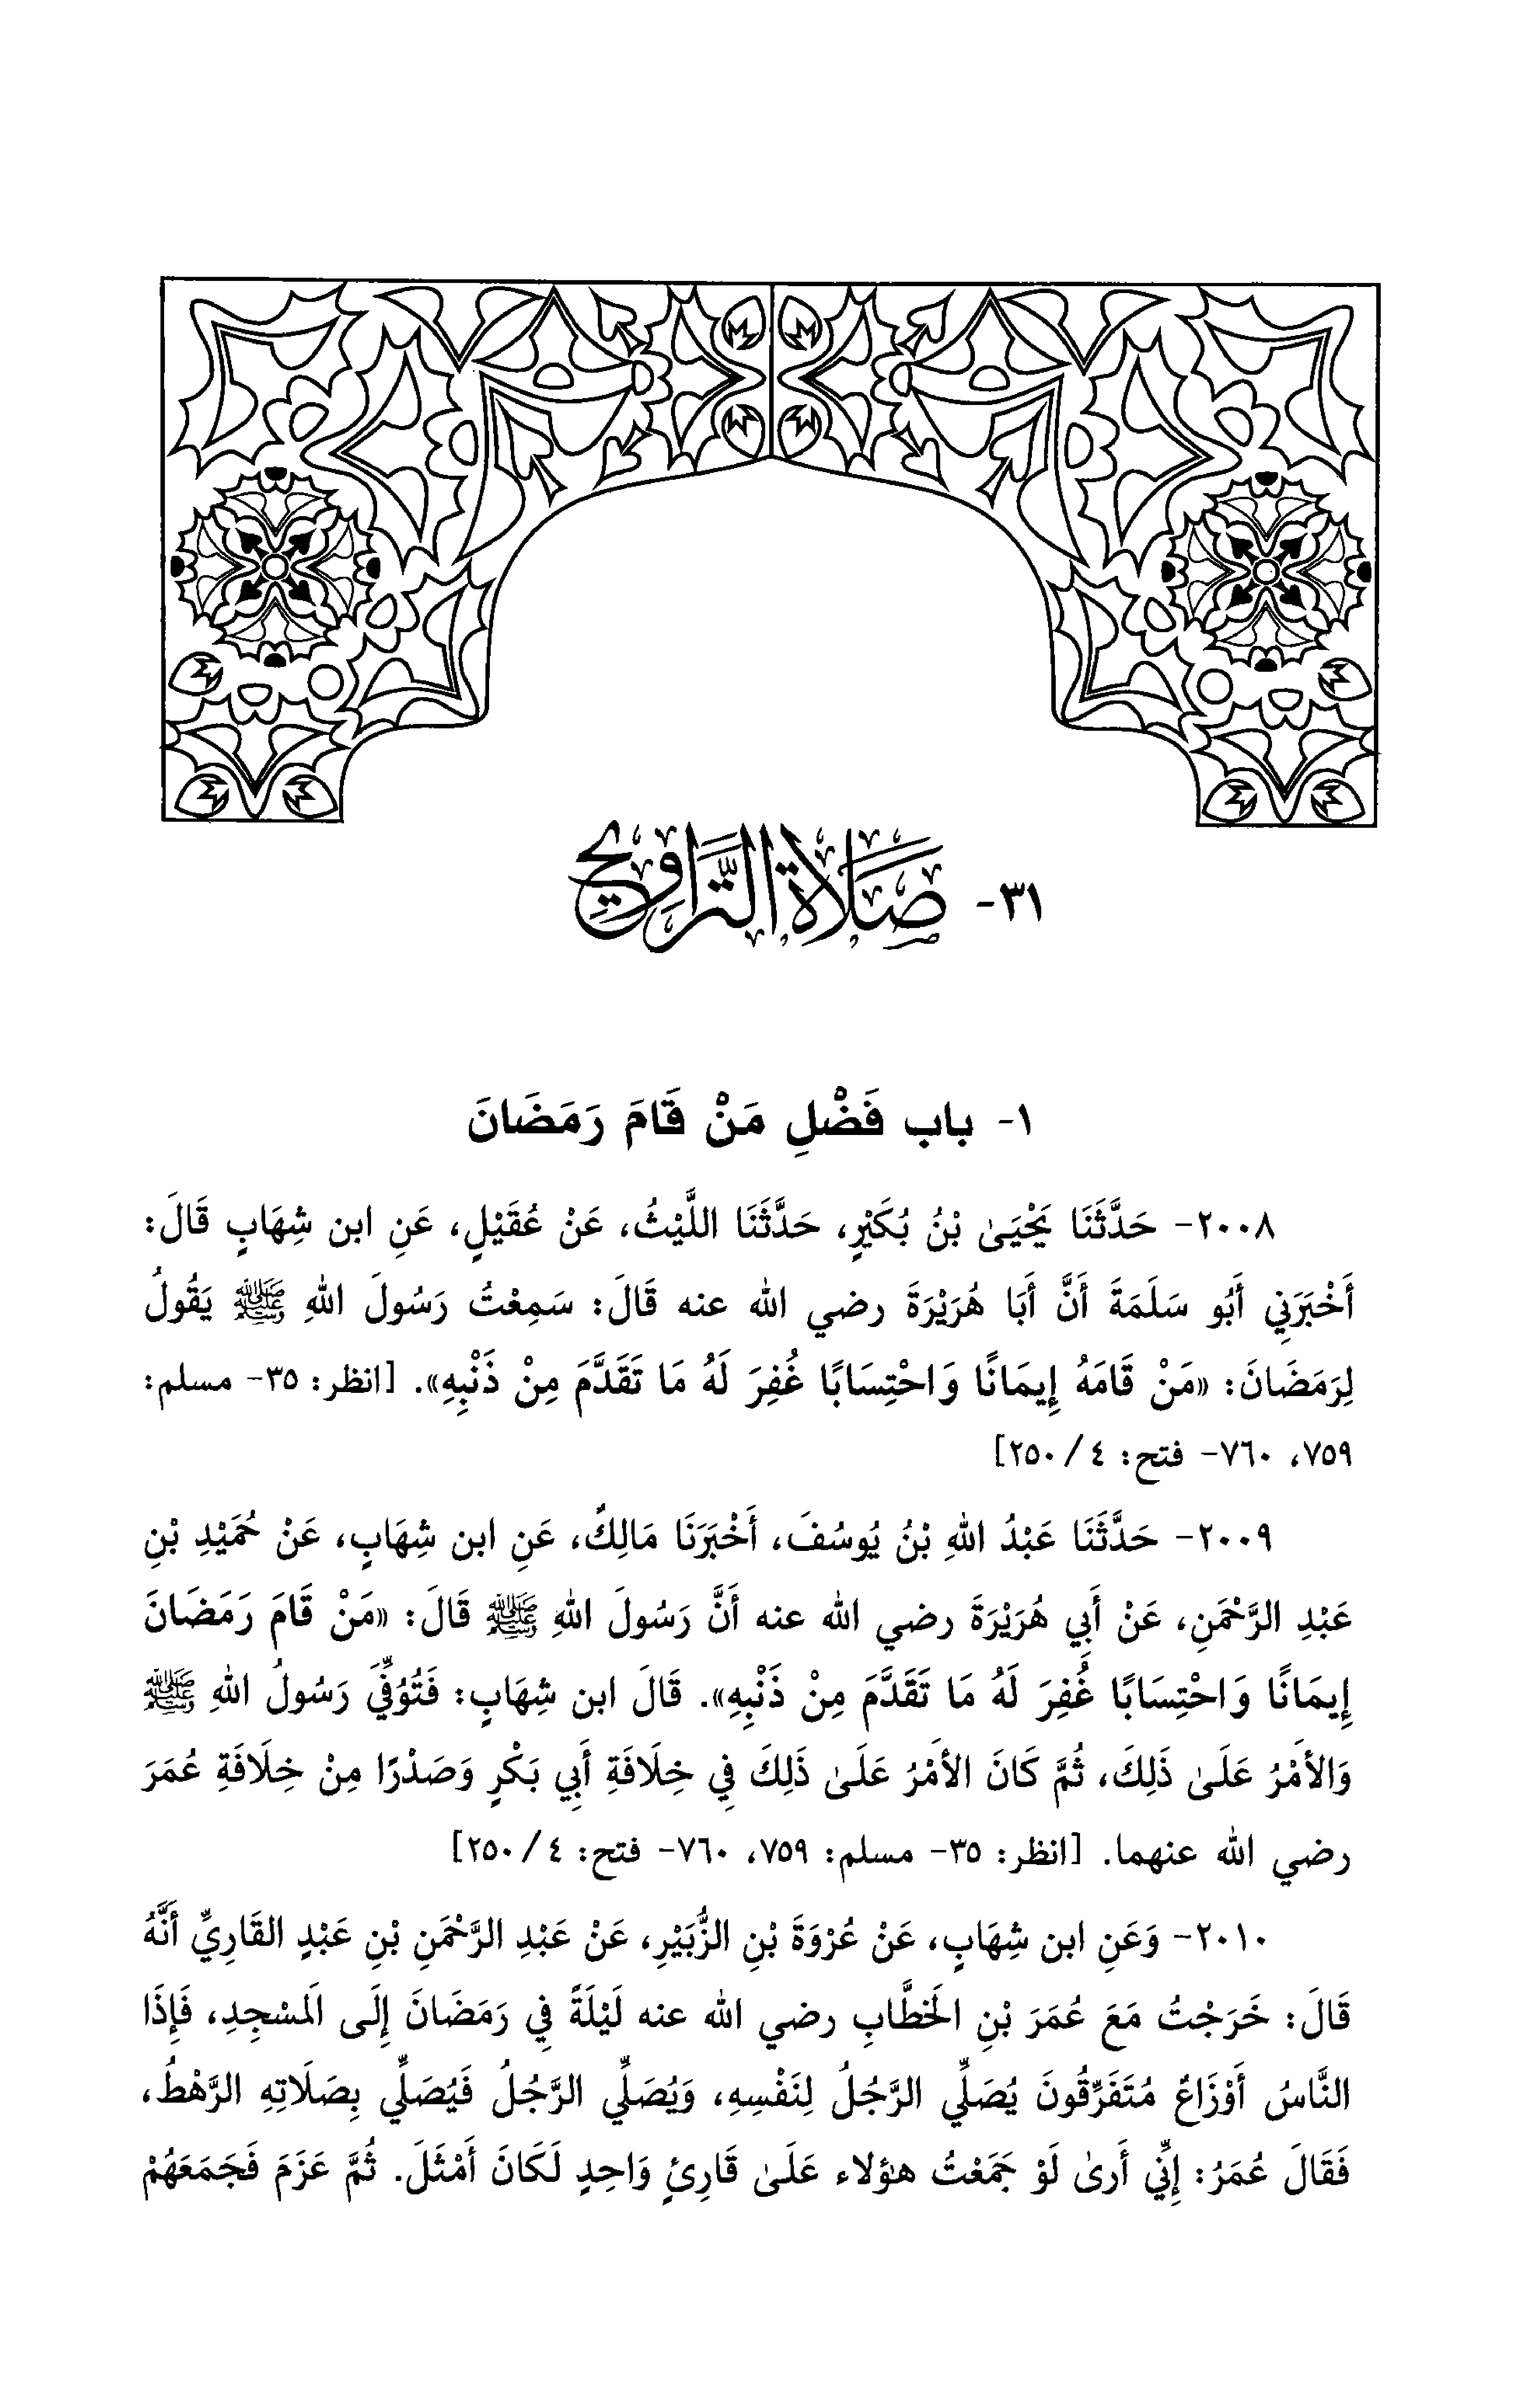 ٣١- صَلَاةُ التَّرَاوِيحِ
١- باب فَضْلِ مَنْ قَامَ رَمَضَانَ
٢٠٠٨- حَدَّثَنَا يَحْيَىٰ بْنُ بُكَيْرٍ، حَدَّثَنَا اللَّيْثُ، عَنْ عُقَيْلٍ، عَنِ ابن شِهَابٍ قَالَ:
أَخْبَرَنِي أَبُو سَلَمَةَ أَنَّ أَبَا هُرَيْرَةَ رضي الله عنه قَالَ: سَمِعْتُ رَسُولَ اللهِ ﷺ يَقُولُ
لِرَمَضَانَ: «مَنْ قَامَهُ إِيمَانًا وَاحْتِسَابًا غُفِرَ لَهُ مَا تَقَدَّمَ مِنْ ذَنْبِهِ». [انظر: ٣٥- مسلم:
٧٥٩، ٧٦٠- فتح: ٤/ ٢٥٠]
٢٠٠٩- حَدَّثَنَا عَبْدُ اللهِ بْنُ يُوسُفَ، أَخْبَرَنَا مَالِكٌ، عَنِ ابن شِهَابٍ، عَنْ حُمَيْدِ بْنِ
عَبْدِ الرَّحْمَنِ، عَنْ أَبِي هُرَيْرَةَ رضي الله عنه أَنَّ رَسُولَ اللهِ ﷺ قَالَ: «مَنْ قَامَ رَمَضَانَ
إِيمَانًا وَاحْتِسَابًا غُفِرَ لَهُ مَا تَقَدَّمَ مِنْ ذَنْبِهِ». قَالَ ابن شِهَابٍ: فَتُوُفِّيَ رَسُولُ اللهِ ﷺ
وَالأَمْرُ عَلَىٰ ذَلِكَ، ثُمَّ كَانَ الأَمْرُ عَلَىٰ ذَلِكَ فِي خِلَافَةِ أَبِي بَكْرٍ وَصَدْرًا مِنْ خِلَافَةِ عُمَرَ
رضي الله عنهما. [انظر: ٣٥- مسلم: ٧٥٩، ٧٦٠- فتح: ٤/ ٢٥٠]
٢٠١٠- وَعَنِ ابن شِهَابٍ، عَنْ عُرْوَةَ بْنِ الزُّبَيْرِ، عَنْ عَبْدِ الرَّحْمَنِ بْنِ عَبْدٍ القَارِيِّ أَنَّهُ
قَالَ: خَرَجْتُ مَعَ عُمَرَ بْنِ الَخطَّابِ رضي الله عنه لَيْلَةً فِي رَمَضَانَ إِلَى الَمسْجِدِ، فَإِذَا
النَّاسُ أَوْزَاعٌ مُتَفَرِّقُونَ يُصَلِّي الرَّجُلُ لِنَفْسِهِ، وَيُصَلِّي الرَّجُلُ فَيُصَلِّي بِصَلَاتِهِ الرَّهْطُ،
فَقَالَ عُمَرُ: إِنِّي أَرىٰ لَوْ جَمَعْتُ هؤلاء عَلَىٰ قَارِئٍ وَاحِدٍ لَكَانَ أَمْثَلَ. ثُمَّ عَزَمَ فَجَمَعَهُمْ